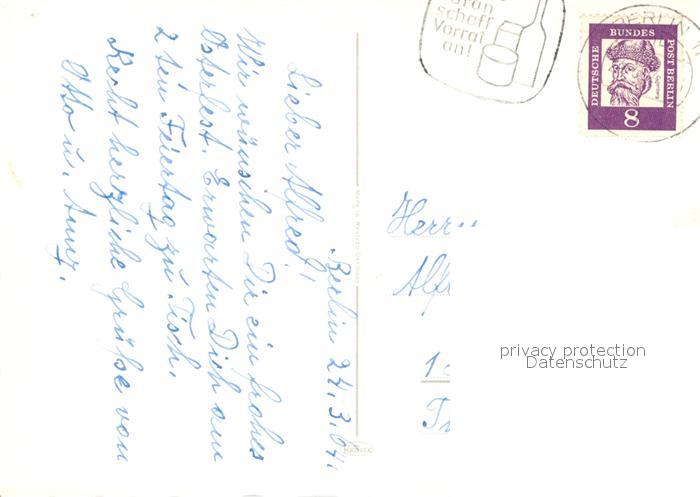 Berlin 24.3.64.
Lieber Alfred!
Wir wünschen Dir ein frohes
Osterfest. Erwarten Dich am
2 ten Feiertag zu Tisch.
Recht herzliche Grüße von
Otto u.
daran
schaff
Vorrat
an!
BERLIN
DEUTSCHE BUNDES POST BERLIN
8
Herr
Alf
1
privacy protection
Datenschutz
KRÜGER